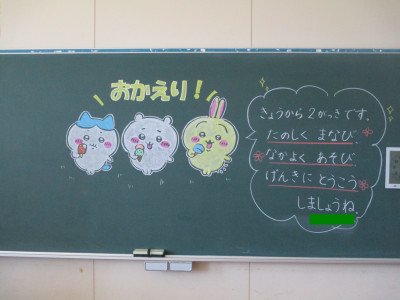 おかえり!
きょうから2がっきです。
たのしく まなび
なかよく あそび
げんきに とうこう
しましょうね。